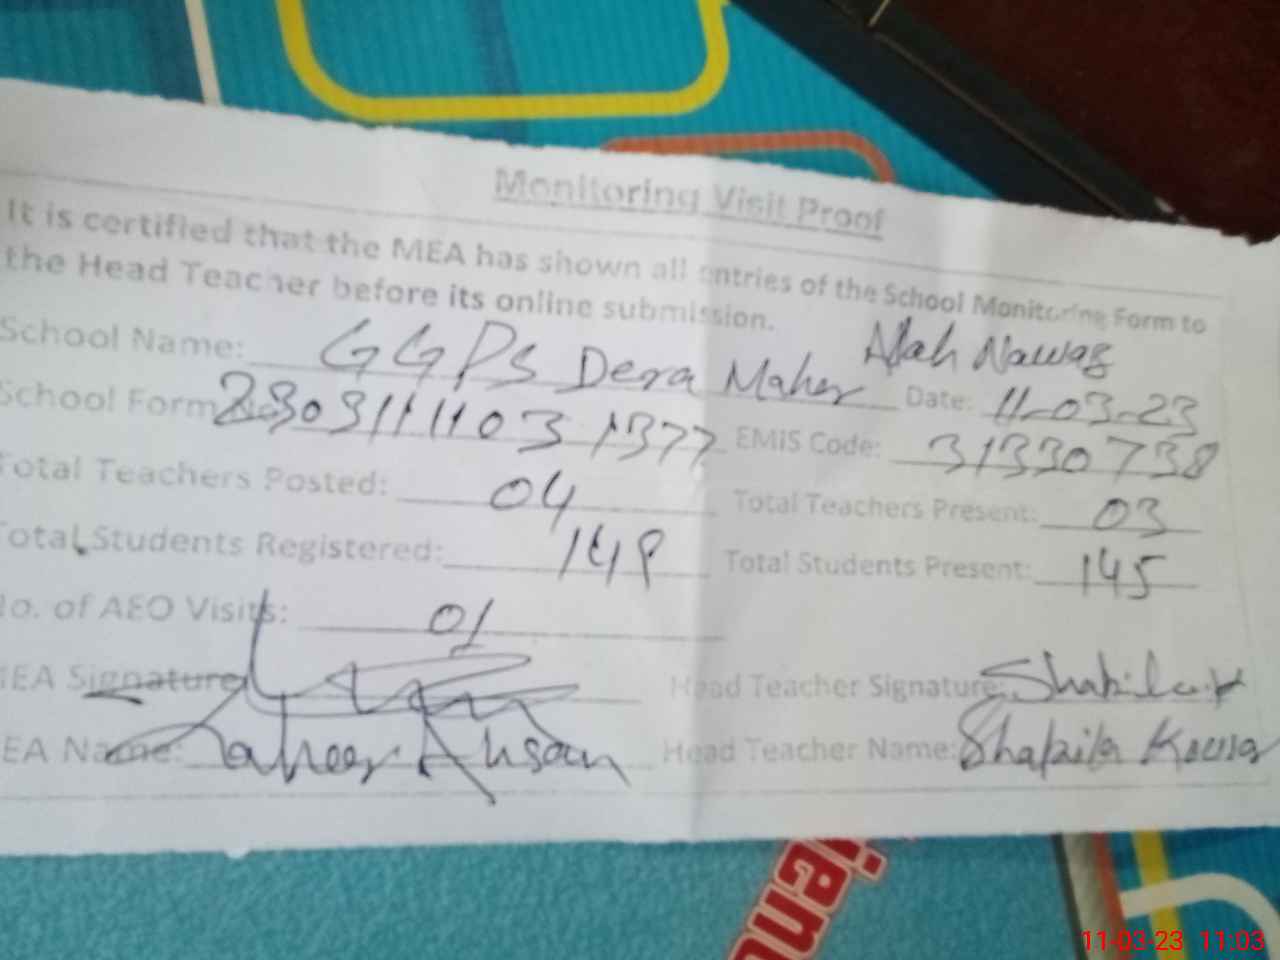 Monitoring Visit Proof
It is certified that the MEA has shown all entries of the School Monitoring Form to
the Head Teacher before its online submission.
School Name: GGPS Dera Maher Allah Nawaz Date: 11-03-23
School Form No: 2303111103 1377 EMIS Code: 31330738
Total Teachers Posted: 04 Total Teachers Present: 03
Total Students Registered: 148 Total Students Present: 145
No. of AEO Visits: 01
MEA Signature Head Teacher Signature: Shakila K
MEA Name: Zaheer Ahsan Head Teacher Name: Shakila Kousar
ience
11-03-23 11:03